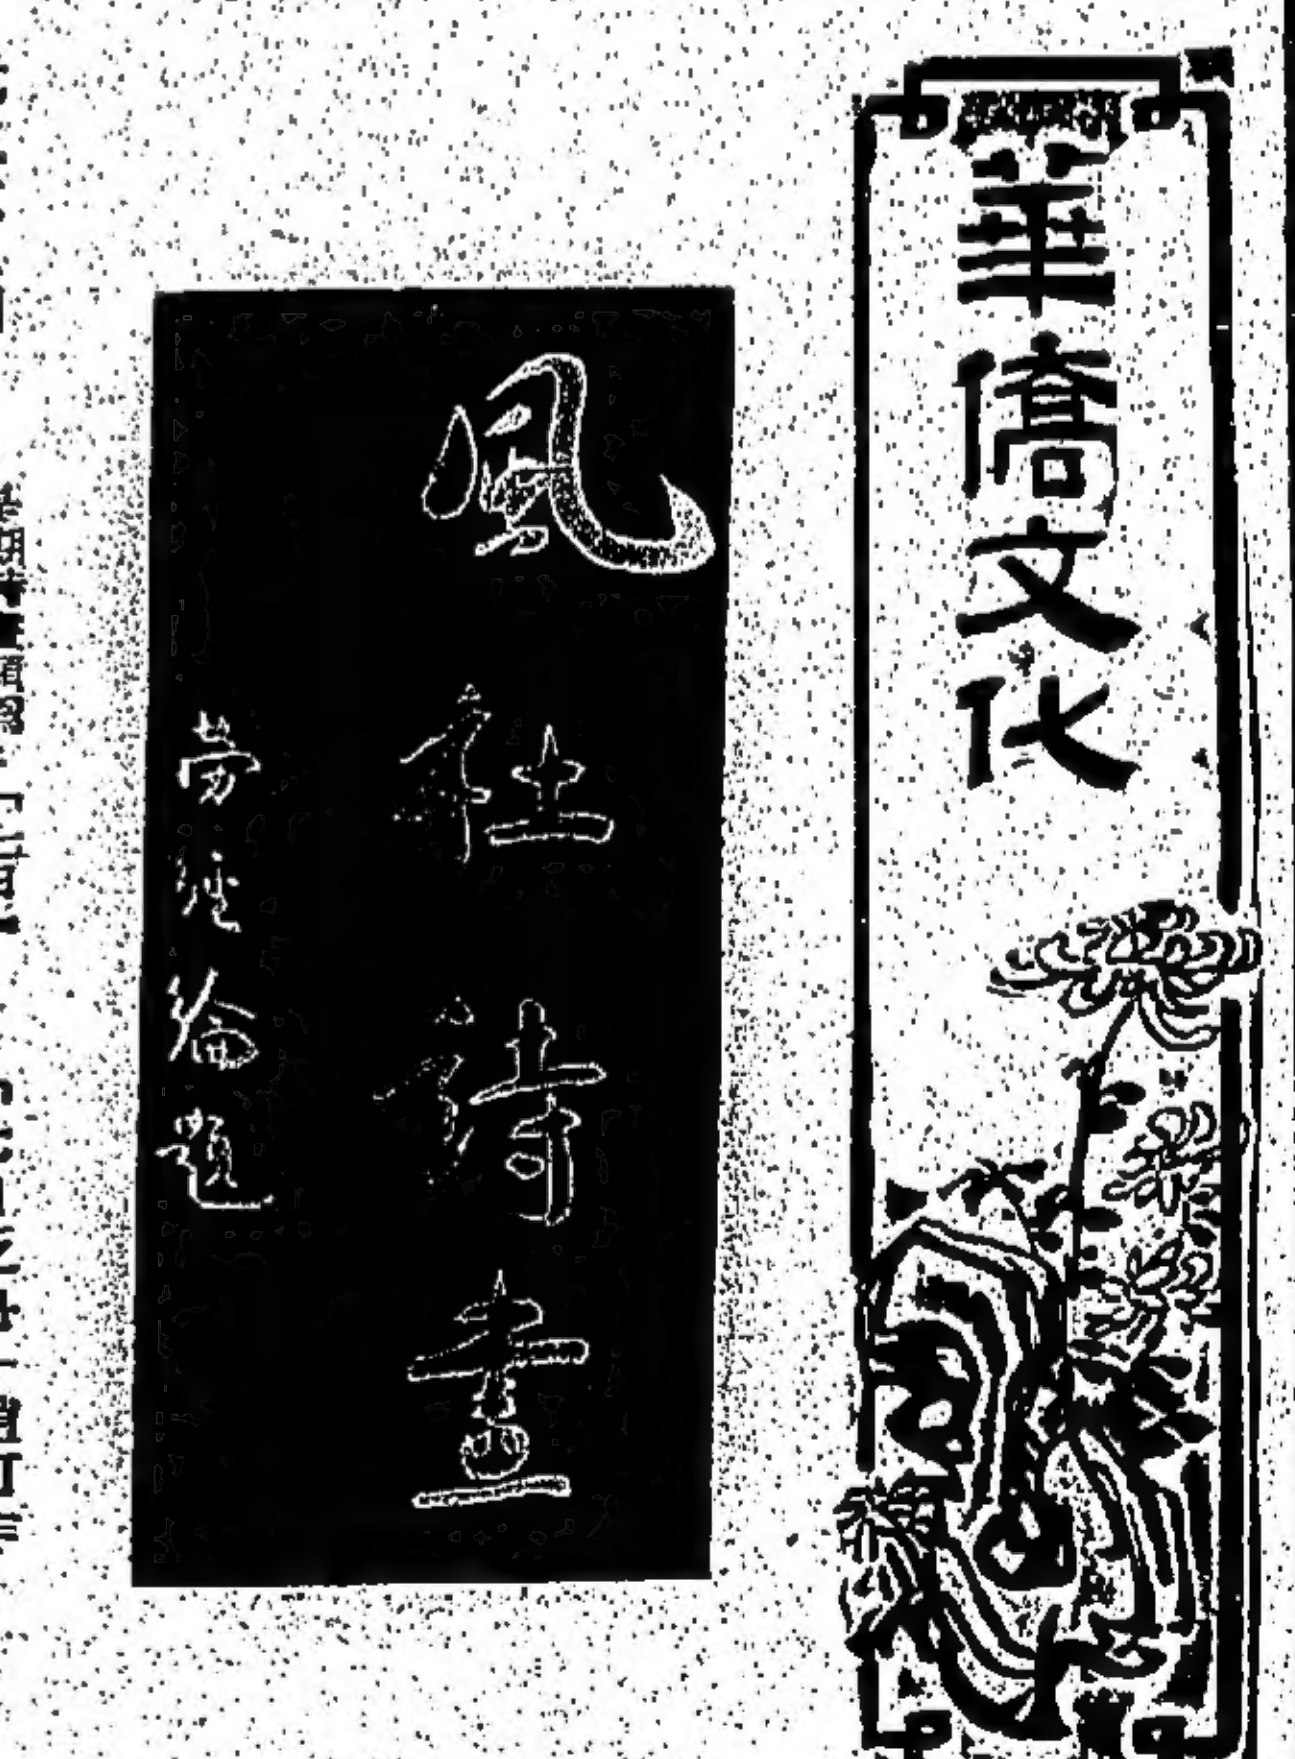 華僑文化
風社詩畫
勞經綸題